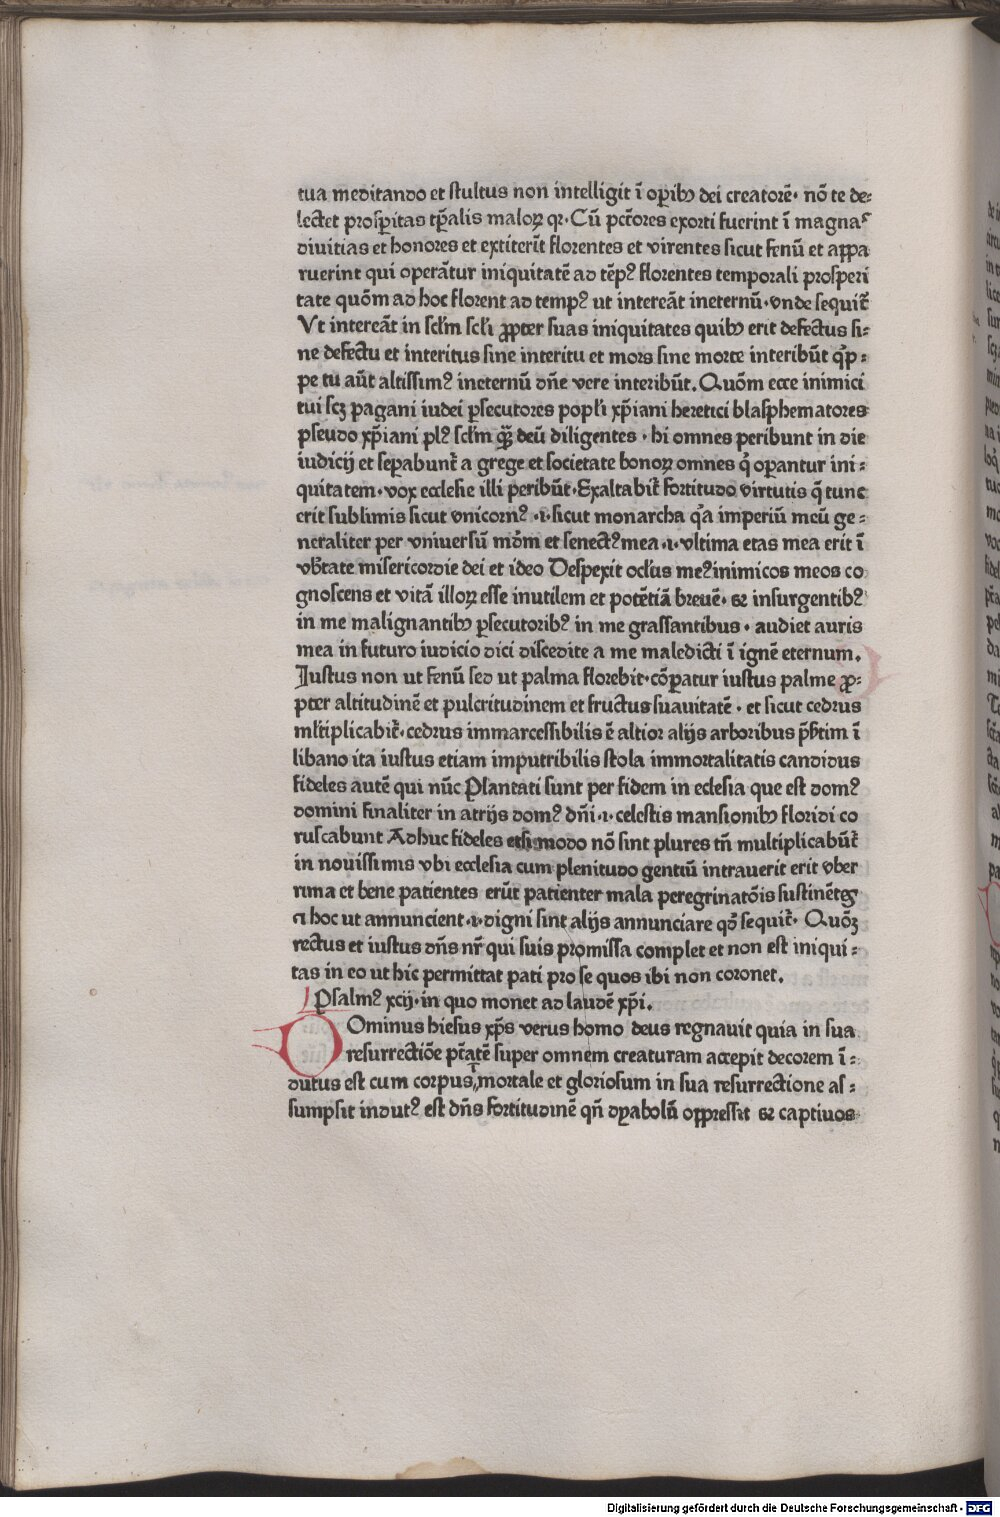 tua meditando et stultus non intelligit ī opībꝫ dei creatorē· nō te de⸗
lectet prosꝑitas tꝑalis maloꝝ qꝛ· Cū pctōres exorti fuerint ī magnas
diuitias et honores et extiterīt florentes et virentes sicut fenū et appa
ruerint qui operātur iniquitatē ad tēpꝰ florentes temporali prosperi
tate quōm ad hoc florent ad tempꝰ ut intereāt ineternū·vnde sequit᷑
Vt intereāt in scl̄m scl̄i ꝓpter suas iniquitates quibꝫ erit defectus si⸗
ne defectu et interitus sine interitu et mors sine morte interibūt q̄p⸗
pe tu aūt altissimꝰ ineternū dn̄e vere interibūt. Quōm ecce inimici
tui scꝫ pagani iudei ꝑsecutores popl̄i xp̄iani heretici blasphematores
pseudo xp̄iani plꝰ scl̄m qꝙ̄ deū diligentes · hi omnes peribunt in die
iudicij et seꝑabunt᷑ a grege et societate bonoꝝ omnes q̇ oꝑantur ini⸗
quitatem·vox ecclesie illi peribūt·Exaltabit᷑ fortitudo virtutis q̄ tunc
erit sublimis sicut vnicornꝰ ·i·sicut monarcha q̇a imperiū meū ge⸗
neraliter per vniuersū mōm et senectꝰ mea ·i·vltima etas mea erit ī
vb̄tate misericordie dei et ideo Despexit ocl̄us meꝰ inimicos meos co
gnoscens et vitā illoꝝ esse inutilem et potētiā breuē· ⁊ insurgentibꝰ
in me malignantibꝫ ꝑsecutoribꝰ in me grassantibus · audiet auris
mea in futuro iudicio dici discedite a me maledicti ī ignē eternum.
Iustus non ut fenū sed ut palma florebit·cōꝑatur iustus palme ꝓ⸗
pter altitudinē et pulcritudinem et fructus suauitatē · et sicut cedrus
ml̄tiplicabit᷑·cedrus immarcessibilis ē altior alijs arboribus p̄b̄tim ī
libano ita iustus etiam imputribilis stola immortalitatis candidus
fideles autē qui nūc Plantati sunt per fidem in eclesia que est domꝰ
domini finaliter in atrijs domꝰ dn̄i ·i· celestis mansionibꝫ floridi co
ruscabunt Adhuc fideles etsi modo nō sint plures tn̄ multiplicabūt᷑
in nouissimis vbi ecclesia cum plenitudo gentiū intrauerit erit vber
rima et bene patientes erūt patienter mala peregrinatōis sustinētes
⁊ hoc ut annuncient ·i·digni sint alijs annunciare qd̄ sequit᷑· Quōꝫ
rectus et iustus dn̄s nr̄ qui suis promissa complet et non est iniqui⸗
tas in eo ut hic permittat pati pro se quos ibi non coronet.
Psalmꝰ xcij·in quo monet ad laudē xp̄i.
Dominus hiesus xp̄s verus homo deus regnauit quia in sua
resurrectiōe pt̄atē super omnem creaturam accepit decorem ī⸗
dutus est cum corpus mortale et gloriosum in sua resurrectione as⸗
sumpsit indutꝰ est dn̄s fortitudinē qn̄ dyabolū oppressit ⁊ captiuos
Digitalisierung gefördert durch die Deutsche Forschungsgemeinschaft - DFG